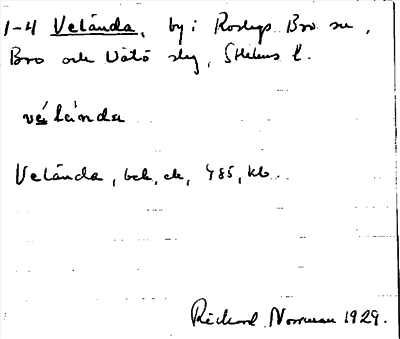 1-4 Velånda, by i Roslags Bro sn,
Bro och Vätö slg, Sthlms l.
Velånda, bek, ek, 485, kb.
Rickard Norrman 1929.